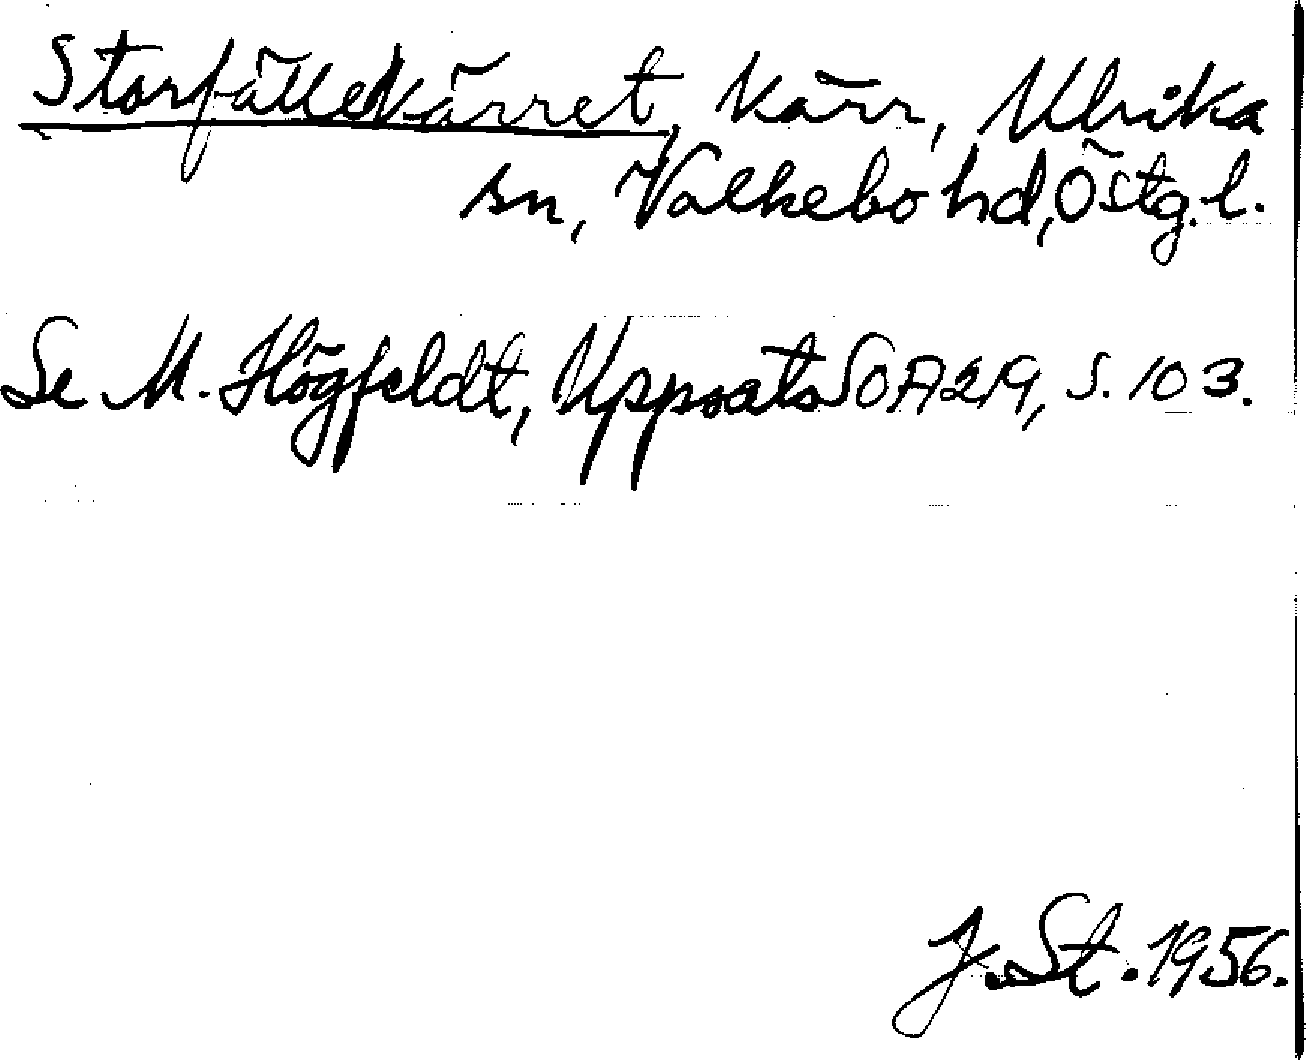 Storfällekärret, kärr, Ulrika
sn, Valkebo hd, Östg. l.
Se M. Högfeldt, Uppsats SOA 219, s. 103.
J. St. 1956.